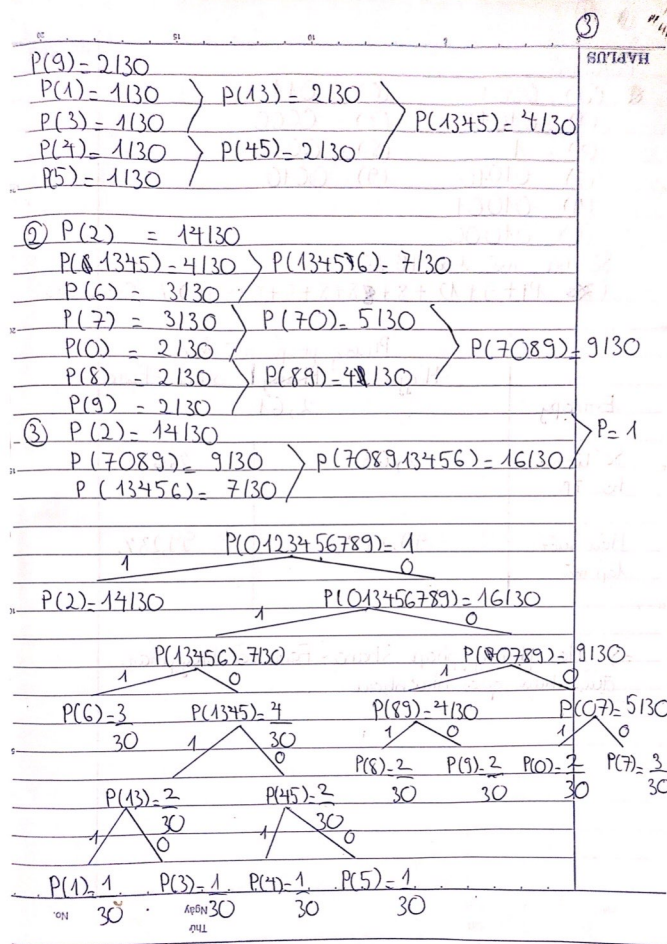 ③
HAPLUS
P(9) = 2/30
P(1) = 1/30
P(13) = 2/30
P(3) = 1/30
P(1345) = 4/30
P(4) = 1/30
P(45) = 2/30
P(5) = 1/30
② P(2) = 14/30
P(1345) = 4/30
P(13456) = 7/30
P(6) = 3/30
P(7) = 3/30
P(70) = 5/30
P(0) = 2/30
P(7089) = 9/30
P(8) = 2/30
P(89) = 4/30
P(9) = 2/30
③ P(2) = 14/30
P = 1
P(7089) = 9/30
P(708913456) = 16/30
P(13456) = 7/30
P(0123456789) = 1
1 0
P(2) = 14/30 P(013456789) = 16/30
1 0
P(13456) = 7/30 P(0789) = 9/30
1 0 1 0
P(6) = 3/30 P(1345) = 4/30 P(89) = 4/30 P(07) = 5/30
1 0 1 0 1 0
P(8) = 2/30 P(9) = 2/30 P(0) = 2/30 P(7) = 3/30
P(13) = 2/30 P(45) = 2/30
1 0 1 0
P(1) = 1/30 P(3) = 1/30 P(4) = 1/30 P(5) = 1/30
No.
Thứ
Ngày